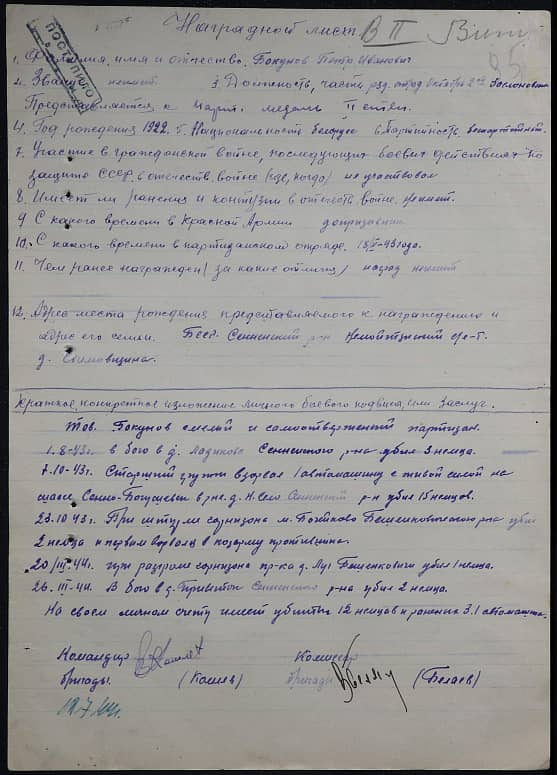 Наградной лист
В П
ПОСТУПИЛО
1. Фамилия, имя и отчество. Бокунов Петр Иванович
2. Звание неимеет 3. Должность, часть ряд. отряд
Представляется к парт. медаль II степен.
4. Год рождения 1922 г. Национальность белорус партийность беспартийный
7. Участие в гражданской войне, последующих боевых действиях по
защите СССР в отечеств. войне (где, когда) не участвовал
8. Имеет ли ранения и контузии в отечеств войне. неимеет.
9 С какого времени в Красной Армии
10. С какого времени в партизанском отряде. 43 года.
11. Чем ранее награжден (за какие отличия) наград неимеет
12. Адрес места рождения представляемого к награждению и
адрес его семьи. БССР. Сенненский р-н
д.
Краткое, конкретное изложение личного боевого подвига, или заслуг.
Тов. Бокунов смелый и самоотверженый партизан.
1.8-43г. в бою в д. Сенненского р-на убил 3 немца.
7.10-43г. взорвал 1 автомашину с живой силой на
шоссе Сенно-Богушевск в рне. д. Н. Село Сенненский р-н убил 15 немцов.
23.10 43г. При штурме гарнизона м. Бочейково Бешенковического р-на убил
2 немца и первым ворвался в казарму противника.
20/III-44г. при разгроме гарнизона д. Луг Бешенковичи убил 1 немца.
26. III-44. В бою в д. Сенненского р-на убил 2 немца.
На своем личном счету имеет убитых 12 немцов и раненых 3. 1 автомашина.
Командир Комиссар
бригады. (Кошлев) бригады (Беляев)